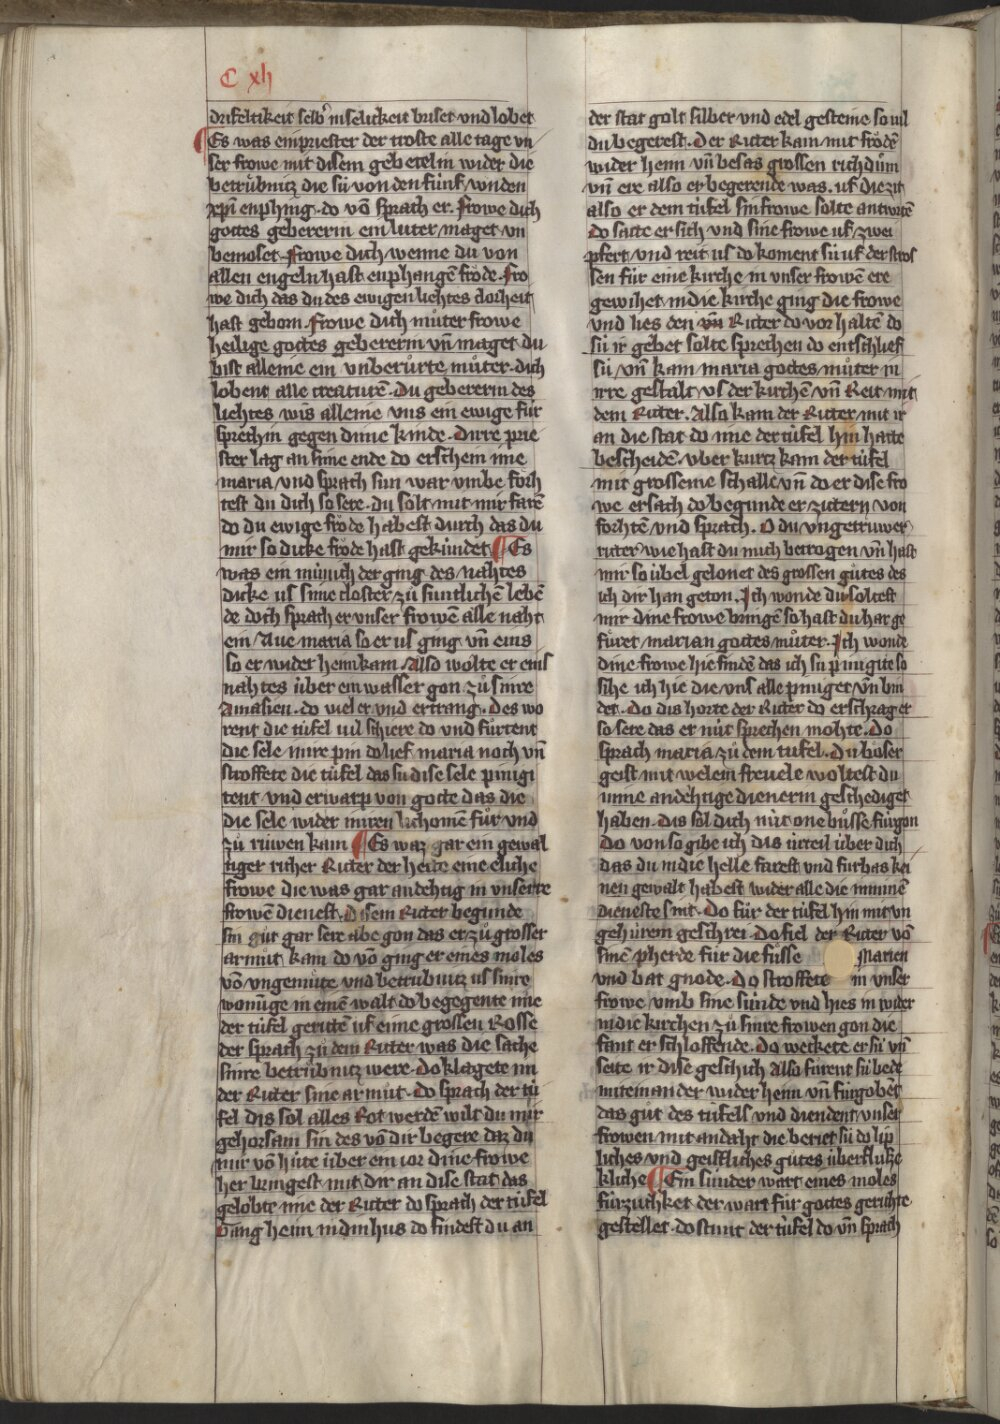 C xlj
drifeltikeit selb' in selickeit briset vnd lobet
Es was ein priester der troste alle tage vn
ser frowe mit disem gebetelin wider die
betrůbnitz die sú von den fúnf wnden
xp̄i enphing. do vō sprach er. frowe dich
gottes gebererin ein luter maget vn
bemoset. frowe dich wenne du von
allen engeln hast enphangē frôde. fro
we dich das du des ewigen liehtes clorheit
hast geborn. frowe dich můter frowe
heilige gottes gebererin vn̄ maget du
bist alleine ein vnberůrte můter. dich
lobent alle creaturē. Du gebererin des
liehtes wis alleine vns ein ewige fúr
sprechin gegen dime kinde. Dirre prie
ster lag an sime ende do erschein ime
maria vnd sprach sun war vmbe fôrh
test du dich so sere. du solt mit mir farē
do du ewige frôde habest durch das du
mir so dicke frôde hast gekúndet ¶ Es
was ein múnich der ging des nahtes
dicke us sime closter zů súntlichē lebē
de doch sprach er vnser frowē alle naht
ein Aue maria so er us ging vn̄ eins
so er wider hein kam. Also wolte er eins
nahtes úber ein wasser gon zů sinre
amasien. do viel er vnd ertrang. Des wo
rent die túfel vil schiere do vnd fůrtent
die sele inire pin do lief maria noch vn̄
stroffete die túfel das sú dise sele pinigi
tent vnd erwarp von gotte das die
die sele wider in iren lichomē fůr vnd
zů rúwen kam ¶ Es waz gar ein gewal
tiger richer Ritter der hette eine eliche
frowe die was gar andehtig in vnserre
frowē dienest. Disem Ritter begunde
sin gůt gar sere abe gon das er zů grosser
armůt kam do vō ging er eines moles
vō vngemůte vnd betrůbnitz us sinre
wonúge in einē walt do begegente ime
der túfel gerittē uf eime grossen Rosse
der sprach zů dem Ritter was die sache
sinre betrůbnitz were. Do klagete im
der Ritter sine armůt. Do sprach der tú
fel dis sol alles Rot werdē wilt du mir
gehorsam sin des vō dir begere daz du
mir vō húte úber ein ior dine frowe
her bringest mit dir an dise stat das
gelôbte ime der Ritter do sprach der túfel
Gang hein in din hus do findest du an
der stat golt silber vnd edel gesteine so vil
du begerest. Der Ritter kam mit frôdē
wider hein vn̄ besas grossen richdům
vn̄ ere also er begerende was. uf die zit
also er dem túfel sin frowe solte antwrtē
Do satte er sich vnd sine frowe uf zwei
pfert vnd reit us do koment sú uf der stros
sen fúr eine kirche in vnser frowē ere
gewihet in die kirche ging die frowe
vnd lies den vn̄ Ritter do vor haltē do
sú ir gebet solte sprechen do entschlief
sú vn̄ kam maria gottes můter in
irre gestalt vs der kirchē vn̄ Reit mit
dem Ritter. Also kam der Ritter mit ir
an die stat do ime der túfel hin hatte
bescheidē. vber kurtz kam der túfel
mit grosseme schalle vn̄ do er dise fro
we ersach do begunde er zittern von
forhte vnd sprach. O du vngetruwer
ritter wie hast du mich betrogen vn̄ hast
mir so úbel gelonet des grossen gůtes des
ich dir han geton. Ich wonde du soltest
mir dine frowe bringē so hast du har ge
fůret marian gottes můter. Ich wonde
dine frowe hie findē das ich sú pinigite so
sihe ich hie die vns alle piniget vn̄ bin
det. Do dis horte der Ritter do erschrag er
so sere das er nút sprechen mohte. Do
sprach maria zů dem túfel. Du bôser
geist mit welem freuele woltest du
mine andehtige dienerin geschediget
haben. dis sol dich nút one bůsse fúrgon
Do von so gibe ich dis úrteil úber dich
das du in die helle farest vnd fúrbas kei
nen gewalt habest wider alle die in minē
dieneste sint. Do fůr der túfel hin mit vn
gehúrem geschrei. Do fiel der Ritter vō
sinē pherde fúr die fůsse Marien
vnd bat gnode. Do stroffete in vnser
frowe vmb sine súnde vnd hies in wider
in die kirchen zů sinre frowen gon die
fant er schloffende. Do weckete er sú vn̄
seite ir dise geschicht Also fůrent sú bede
miteinander wider hein vn̄ fúrgobēt
das gůt des túfels vnd diendent vnser
frowen mit andaht die beriet sú do lip
liches vnd geistliches gůtes úberflússe
kliche ¶ Ein súnder wart eines moles
fúrzuchket der wart fúr gottes gerihte
gestellet. do stunt der túfel do vn̄ sprach